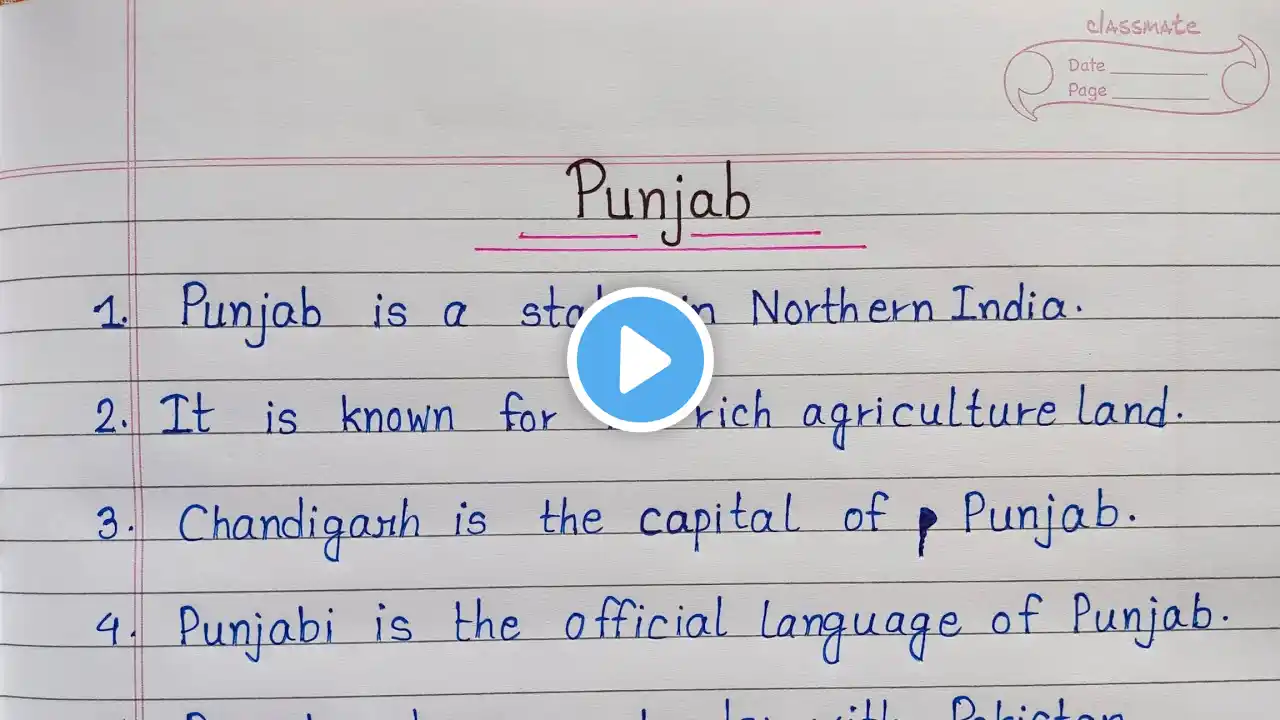 classmate
Date
Page
Punjab
1. Punjab is a in Northern India.
2. It is known for rich agriculture land.
3. Chandigarh is the capital of Punjab.
4. Punjabi is the official language of Punjab.
with Pakistan